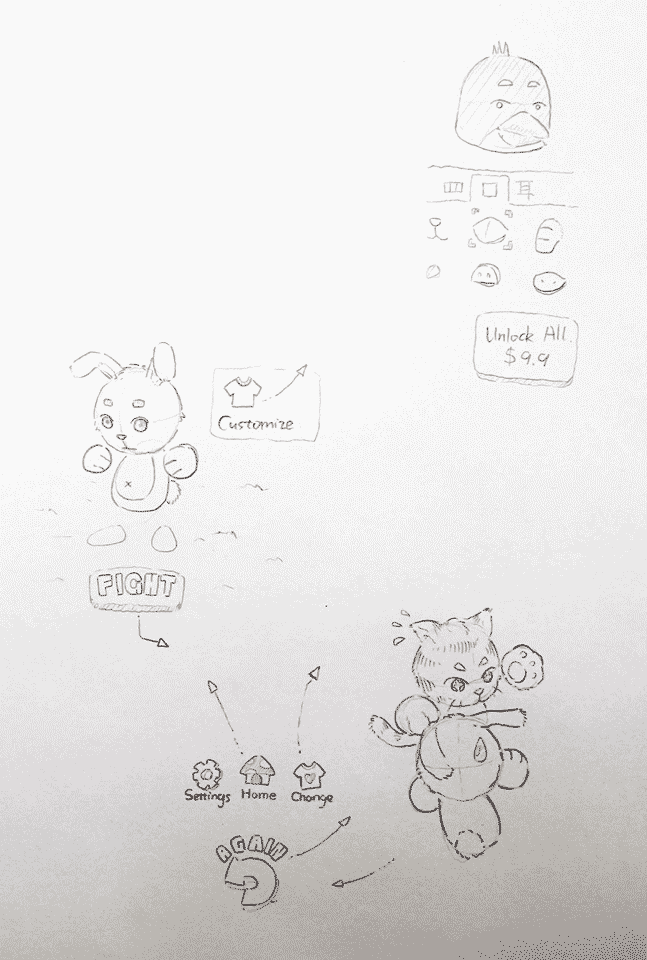 口 耳
Unlock All.
$9.9
Customize
FIGHT
Settings Home Change
AGAIN